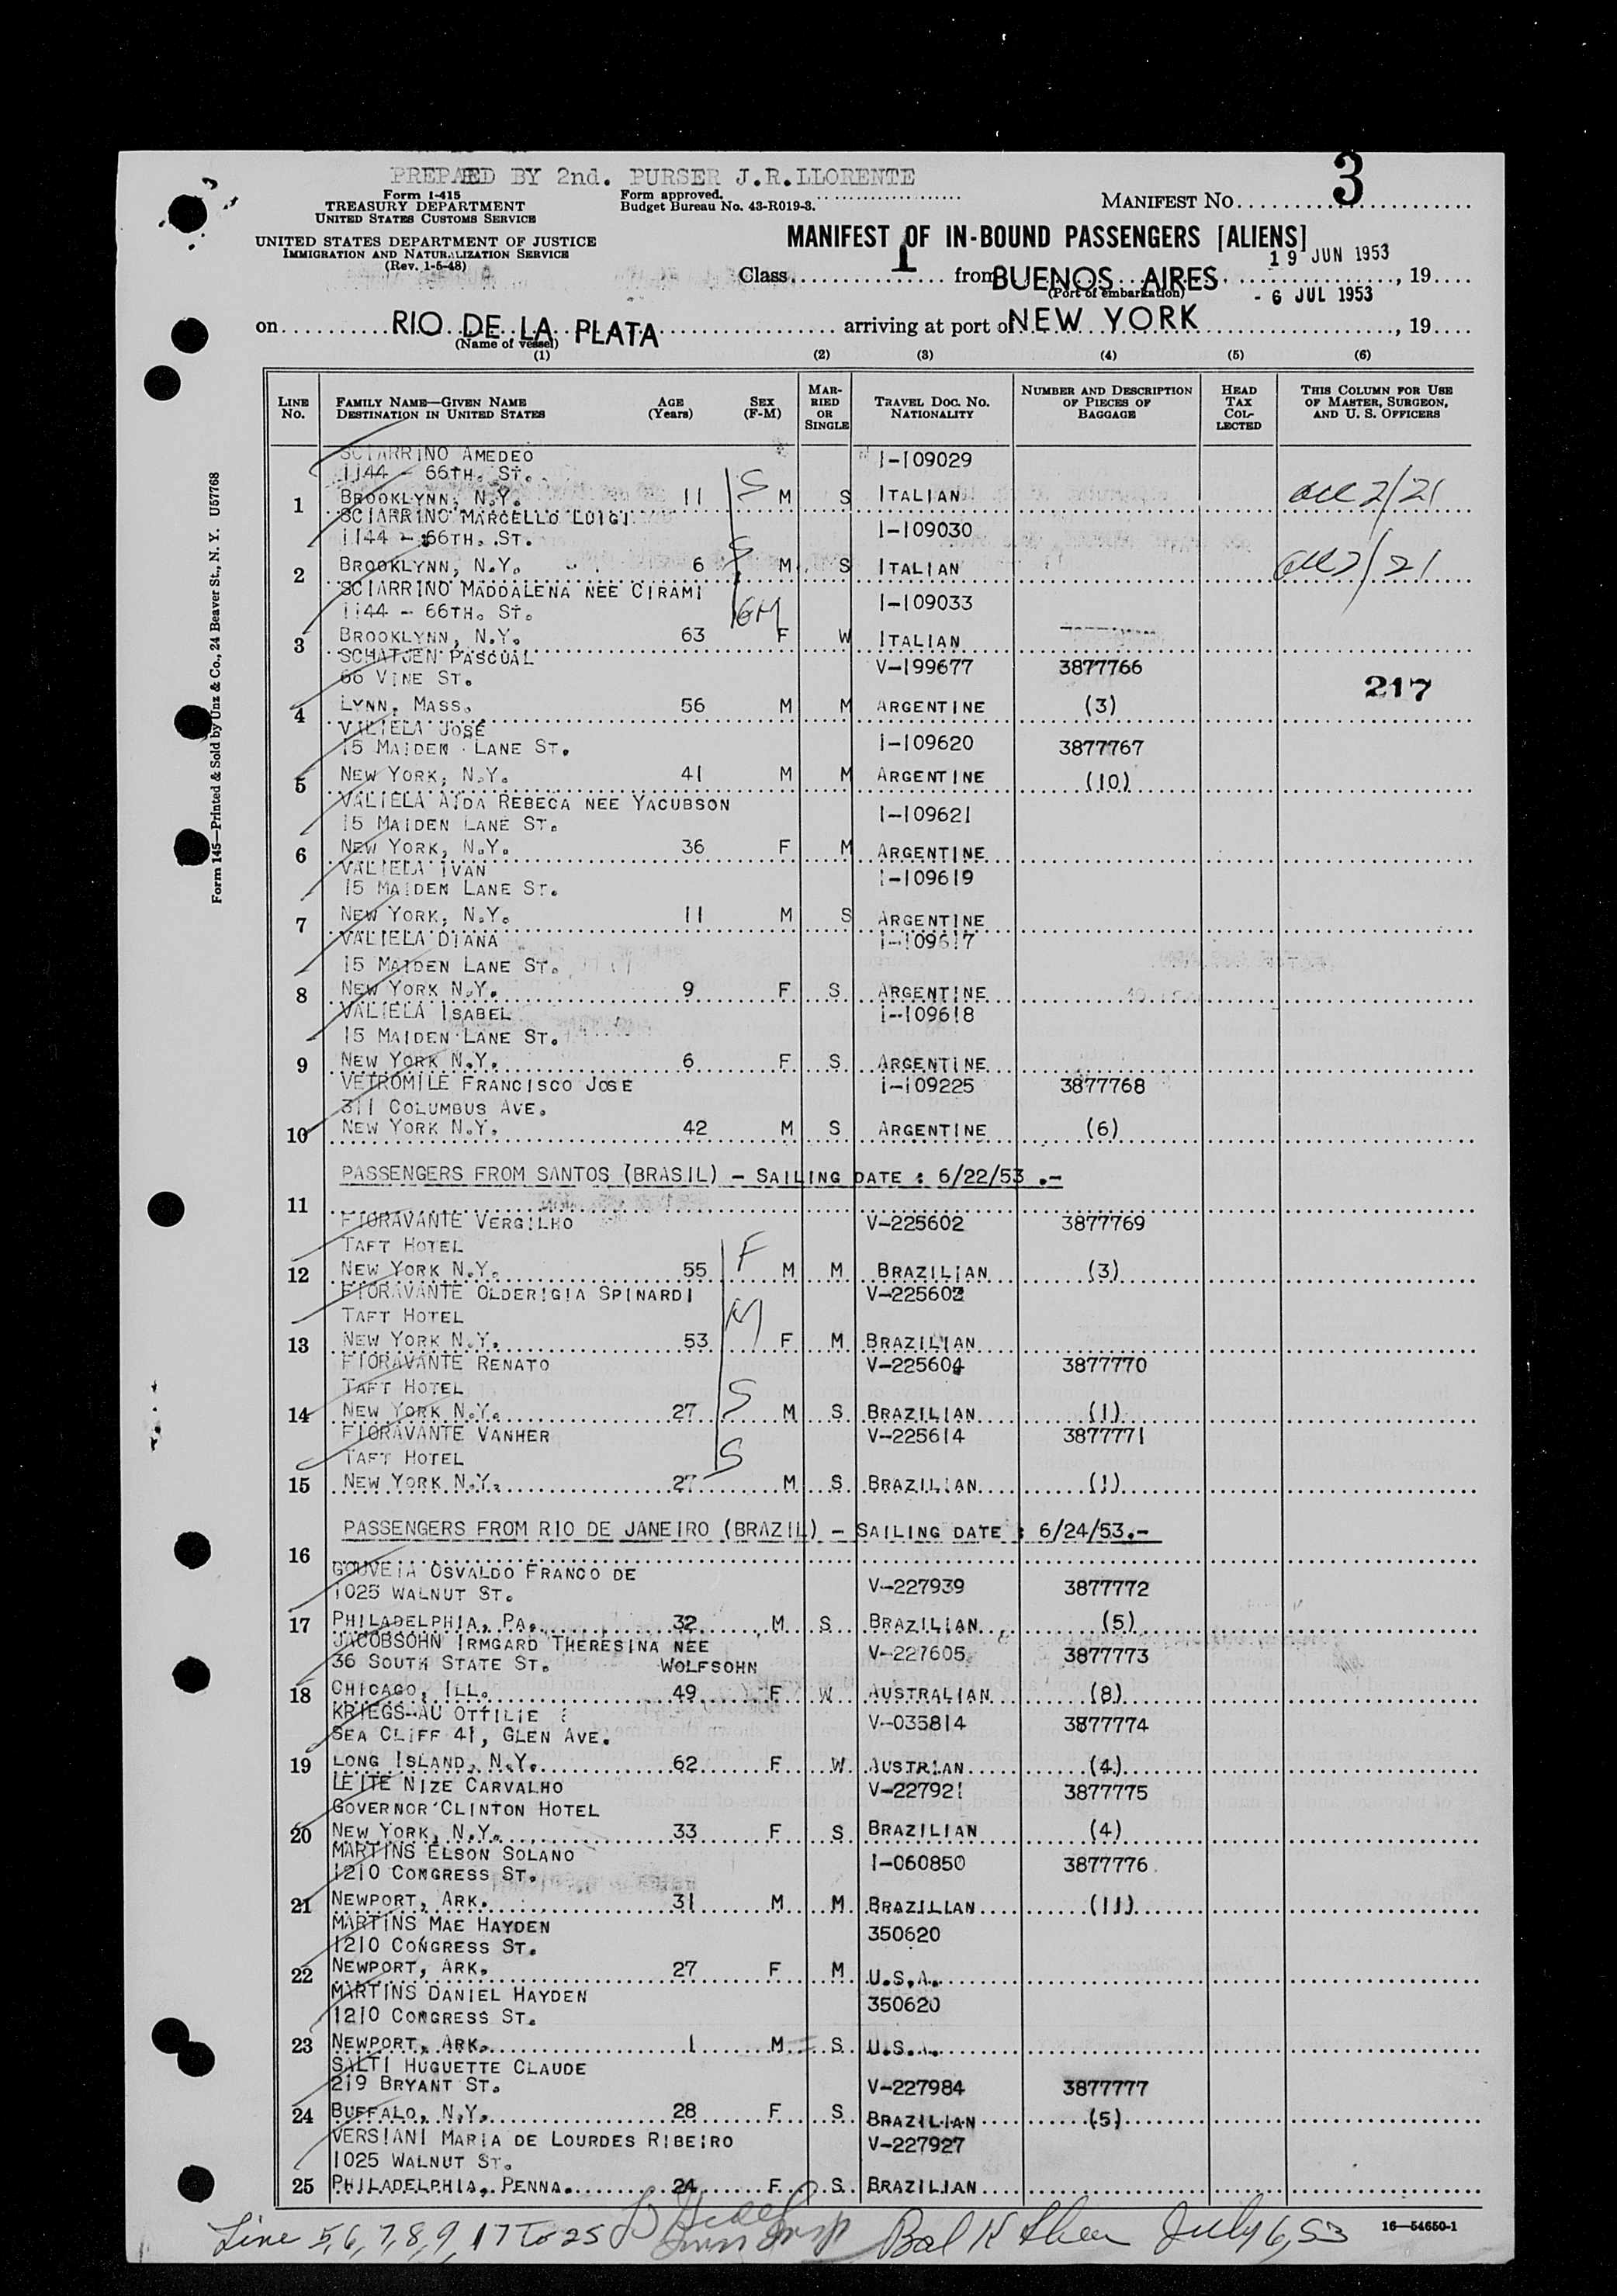 PREPAED BY 2nd. PURSER J.R.LLORENTE
3
Form I-415
TREASURY DEPARTMENT
UNITED STATES CUSTOMS SERVICE
Form approved.
Budget Bureau No. 43-R019-3.
MANIFEST NO.
UNITED STATES DEPARTMENT OF JUSTICE
IMMIGRATION AND NATURALIZATION SERVICE
(Rev. 1-5-48)
MANIFEST OF IN-BOUND PASSENGERS [ALIENS]
19 JUN 1953
Class 1 from BUENOS AIRES, 19
(Port of embarkation)
- 6 JUL 1953
on RIO DE LA PLATA arriving at port of NEW YORK, 19
(Name of vessel)
(1) (2) (3) (4) (5) (6)
LINE NO. FAMILY NAME—GIVEN NAME DESTINATION IN UNITED STATES AGE (Years) SEX (F-M) MARRIED OR SINGLE TRAVEL DOC. NO. NATIONALITY NUMBER AND DESCRIPTION OF PIECES OF BAGGAGE HEAD TAX COLLECTED THIS COLUMN FOR USE OF MASTER, SURGEON, AND U. S. OFFICERS
SCIARRINO AMEDEO I-109029
1144 - 66TH. ST.
1 BROOKLYNN, N.Y. 11 S M S ITALIAN 2/21
SCIARRINO MARCELLO LUIGI I-109030
1144 - 66TH. ST.
2 BROOKLYNN, N.Y. 6 S M S ITALIAN 2/21
SCIARRINO MADDALENA NEE CIRAMI I-109033
1144 - 66TH. ST. GM
3 BROOKLYNN, N.Y. 63 F W ITALIAN
SCHATJEN PASCUAL V-199677 3877766
66 VINE ST. 217
4 LYNN, MASS. 56 M M ARGENTINE (3)
VALIELA JOSE I-109620 3877767
15 MAIDEN LANE ST.
5 NEW YORK, N.Y. 41 M M ARGENTINE (10)
VALIELA AIDA REBECA NEE YACUBSON I-109621
15 MAIDEN LANE ST.
6 NEW YORK, N.Y. 36 F M ARGENTINE
VALIELA IVAN I-109619
15 MAIDEN LANE ST.
7 NEW YORK, N.Y. 11 M S ARGENTINE
VALIELA DIANA I-109617
15 MAIDEN LANE ST.
8 NEW YORK N.Y. 9 F S ARGENTINE
VALIELA ISABEL I-109618
15 MAIDEN LANE ST.
9 NEW YORK N.Y. 6 F S ARGENTINE
VETROMILE FRANCISCO JOSE I-109225 3877768
311 COLUMBUS AVE.
10 NEW YORK N.Y. 42 M S ARGENTINE (6)
PASSENGERS FROM SANTOS (BRASIL) - SAILING DATE : 6/22/53 .-
11
FIORAVANTE VERGILHO V-225602 3877769
TAFT HOTEL
12 NEW YORK N.Y. 55 F M M BRAZILIAN (3)
FIORAVANTE OLDERIGIA SPINARDI V-225603
TAFT HOTEL
13 NEW YORK N.Y. 53 M F M BRAZILIAN
FIORAVANTE RENATO V-225604 3877770
TAFT HOTEL
14 NEW YORK N.Y. 27 S M S BRAZILIAN (1)
FIORAVANTE VANHER V-225614 3877771
TAFT HOTEL
15 NEW YORK N.Y. 27 S M S BRAZILIAN (1)
PASSENGERS FROM RIO DE JANEIRO (BRAZIL) - SAILING DATE : 6/24/53.-
16
GOUVEIA OSVALDO FRANCO DE
1025 WALNUT ST. V-227939 3877772
17 PHILADELPHIA, PA. 32 M S BRAZILIAN (5)
JACOBSOHN IRMGARD THERESINA NEE V-227605 3877773
36 SOUTH STATE ST. WOLFSOHN
18 CHICAGO, ILL. 49 F W AUSTRALIAN (8)
KRIEGS-AU OTTILIE V-035814 3877774
SEA CLIFF 41, GLEN AVE.
19 LONG ISLAND, N.Y. 62 F W AUSTRIAN (4)
LEITE NIZE CARVALHO V-227921 3877775
GOVERNOR CLINTON HOTEL
20 NEW YORK, N.Y. 33 F S BRAZILIAN (4)
MARTINS ELSON SOLANO I-060850 3877776
1210 CONGRESS ST.
21 NEWPORT, ARK. 31 M M BRAZILIAN (11)
MARTINS MAE HAYDEN 350620
1210 CONGRESS ST.
22 NEWPORT, ARK. 27 F M U.S.A.
MARTINS DANIEL HAYDEN 350620
1210 CONGRESS ST.
23 NEWPORT, ARK. 1 M S U.S.A.
SALTI HUGUETTE CLAUDE
219 BRYANT ST. V-227984 3877777
24 BUFFALO, N.Y. 28 F S BRAZILIAN (5)
VERSIANI MARIA DE LOURDES RIBEIRO V-227927
1025 WALNUT ST.
25 PHILADELPHIA, PENNA. 24 F S BRAZILIAN
Line 5,6,7,8,9,17 to 25 Bal July 6, 53
16—54650-1
Form 145—Printed & Sold by Unz & Co., 24 Beaver St., N. Y. U57768